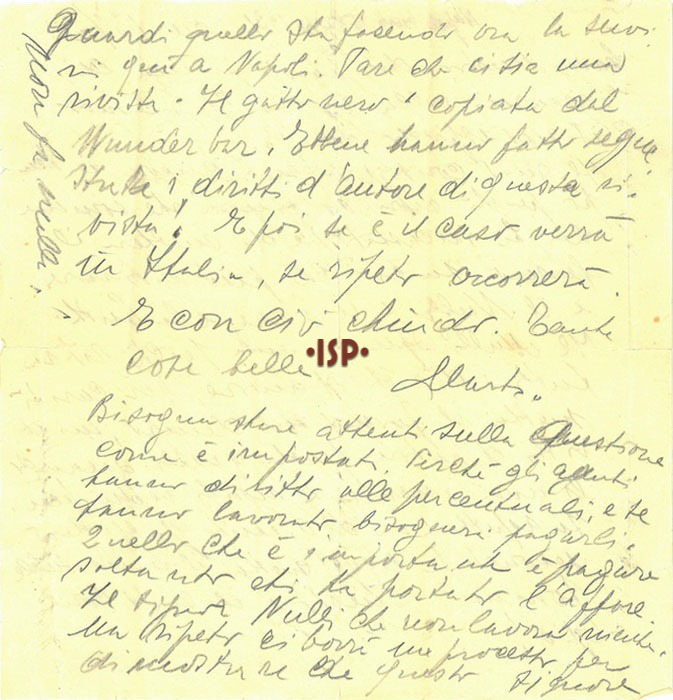 Guardi quello sta facendo ora la
qui a Napoli. Pare che ci sia una
rivista "Il gatto nero" copiata dal
Wunder bar. hanno fatto
i diritti d'autore di questa ri-
vista! E poi se è il caso verrà
in Italia, se ripeto occorrerà.
E con ciò chiudo. Tante
cose belle
•ISP•
Marta.
Bisogna stare attenti sulla Questione
come è impostata. Perché gli agenti
hanno diritto alle percentuali, e se
hanno lavorato bisognerà pagarli.
Quello che è importante è pagare
soltanto chi ha portato l'affare.
Il signor Nulli che non lavora niente.
Ma ripeto ci vorrà un processo per
dimostrare che questo signore
non fa nulla.